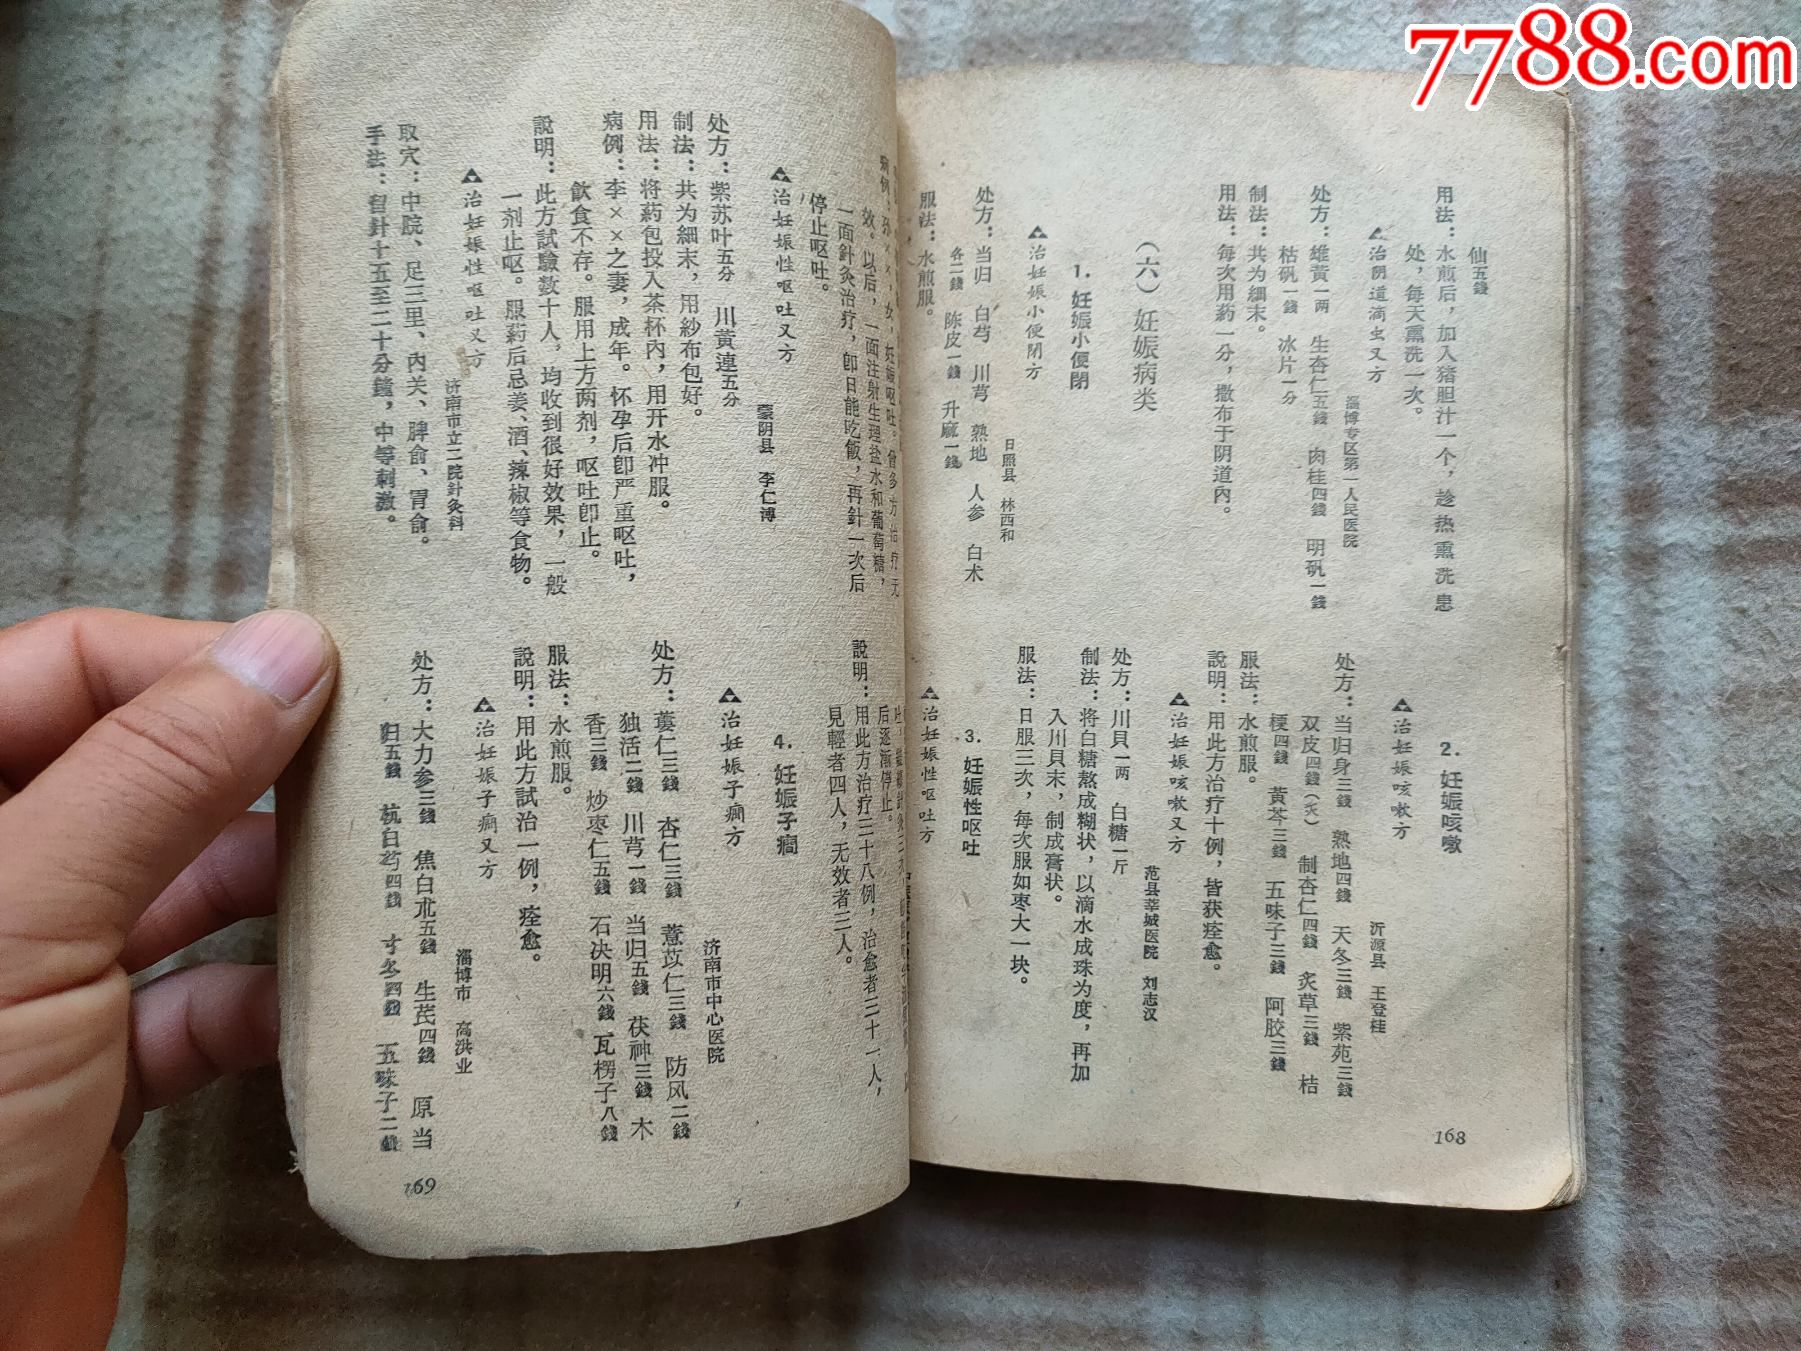 7788.com
仙五錢
用法：水煎后，加入猪胆汁一个，趁热熏洗患
处，每天熏洗一次。
▲治阴道滴虫又方
淄博专区第一人民医院
处方：雄黄一两 生杏仁五錢 肉桂四錢 明矾一錢
枯矾一錢 冰片一分
制法：共为細末。
用法：每次用葯一分，撒布于阴道內。
（六）妊娠病类
1. 妊娠小便閉
▲治妊娠小便閉方
日照县 林西和
处方：当归 白芍 川芎 熟地 人参 白术
各二錢 陈皮一錢 升麻一錢
服法：水煎服。
2. 妊娠咳嗽
▲治妊娠咳嗽方
沂源县 王登桂
处方：当归身三錢 熟地四錢 天冬三錢 紫苑三錢
双皮四錢（炙） 制杏仁四錢 炙草三錢 桔
梗四錢 黃芩三錢 五味子三錢 阿胶三錢
服法：水煎服。
說明：用此方治疗十例，皆获痊愈。
▲治妊娠咳嗽又方
范县莘城医院 刘志汉
处方：川貝一两 白糖一斤
制法：将白糖熬成糊状，以滴水成珠为度，再加
入川貝末，制成膏状。
服法：日服三次，每次服如枣大一块。
3. 妊娠性呕吐
▲治妊娠性呕吐方
168
女，妊娠呕吐。曾多方治疗无
效。以后，一面注射生理盐水和葡萄糖，
一面針灸治疗，卽日能吃飯，再針一次后
停止呕吐。
▲治妊娠性呕吐又方
蒙阴县 李仁博
处方：紫苏叶五分 川黃連五分
制法：共为細末，用紗布包好。
用法：将葯包投入茶杯內，用开水冲服。
病例：李××之妻，成年。怀孕后卽严重呕吐，
飲食不存。服用上方两剂，呕吐卽止。
說明：此方試驗数十人，均收到很好效果，一般
一剂止呕。服葯后忌姜、酒、辣椒等食物。
▲治妊娠性呕吐又方
济南市立二院針灸科
取穴：中脘、足三里、內关、脾俞、胃俞。
手法：留針十五至二十分鐘，中等刺激。
后逐渐停止。
說明：用此方治疗三十八例，治愈者三十一人，
見輕者四人，无效者三人。
4. 妊娠子癎
▲治妊娠子癎方
济南市中心医院
处方：蔞仁三錢 杏仁三錢 薏苡仁三錢 防风二錢
独活二錢 川芎一錢 当归五錢 茯神三錢 木
香三錢 炒枣仁五錢 石决明六錢 瓦楞子八錢
服法：水煎服。
說明：用此方試治一例，痊愈。
▲治妊娠子癎又方
淄博市 高洪业
处方：大力参三錢 焦白朮五錢 生芪四錢 原当
归五錢 杭白芍四錢 寸冬四錢 五味子二錢
169